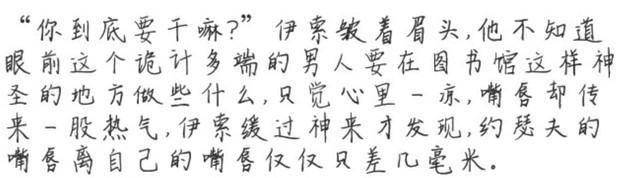 “你到底要干嘛?”伊索皱着眉头,他不知道
眼前这个诡计多端的男人要在图书馆这样神
圣的地方做些什么,只觉心里一凉,嘴唇却传
来一股热气,伊索缓过神来才发现,约瑟夫的
嘴唇离自己的嘴唇仅仅只差几毫米。